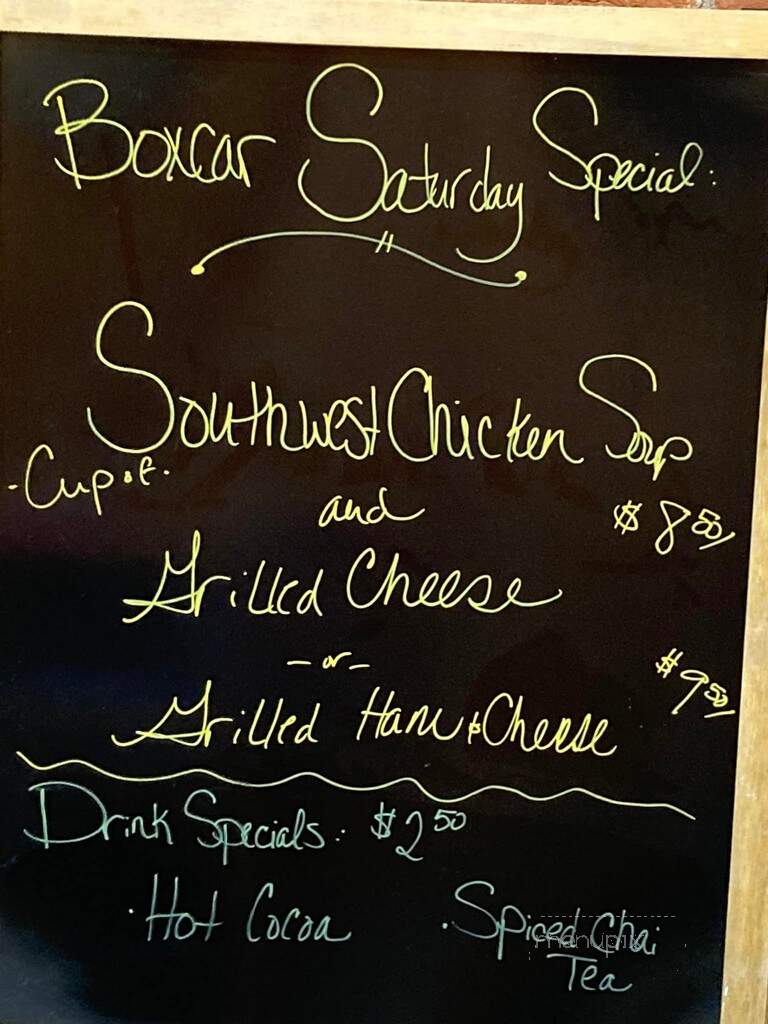 Boxcar Saturday Special:
Southwest Chicken Soup
-Cup of-
and
$8.50/
Grilled Cheese
-or-
$9.50/
Grilled Ham & Cheese
Drink Specials: $2.50
· Hot Cocoa
· Spiced Chai
Tea
menupix